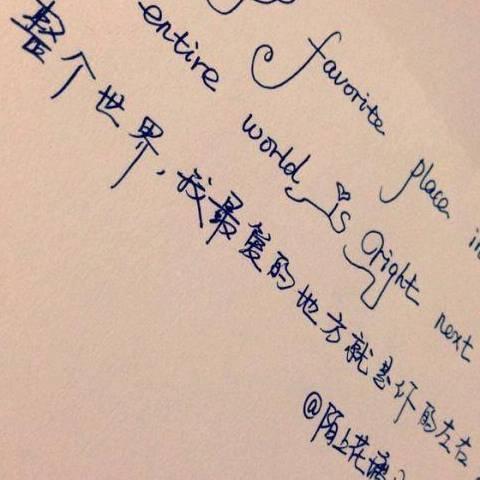 favorite place in
entire world is right next
整个世界，我最爱的地方就是你的左右
@陌上花